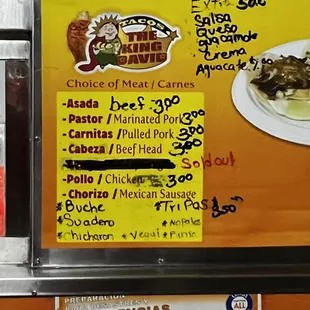 Xtra 50¢
Salsa
Queso
guacamole
Crema
Aguacate $1.00
TACOS
THE
KING
DAVID
Choice of Meat / Carnes
-Asada beef 3.00
-Pastor / Marinated Pork 3.00
-Carnitas /Pulled Pork 3.00
-Cabeza / Beef Head 3.00
Sold out
-Pollo / Chicken 3.00
-Chorizo / Mexican Sausage
*Buche *Tripas
*Suadero *Nopales
*chicharon *Veggi *Pina
PREPARACION